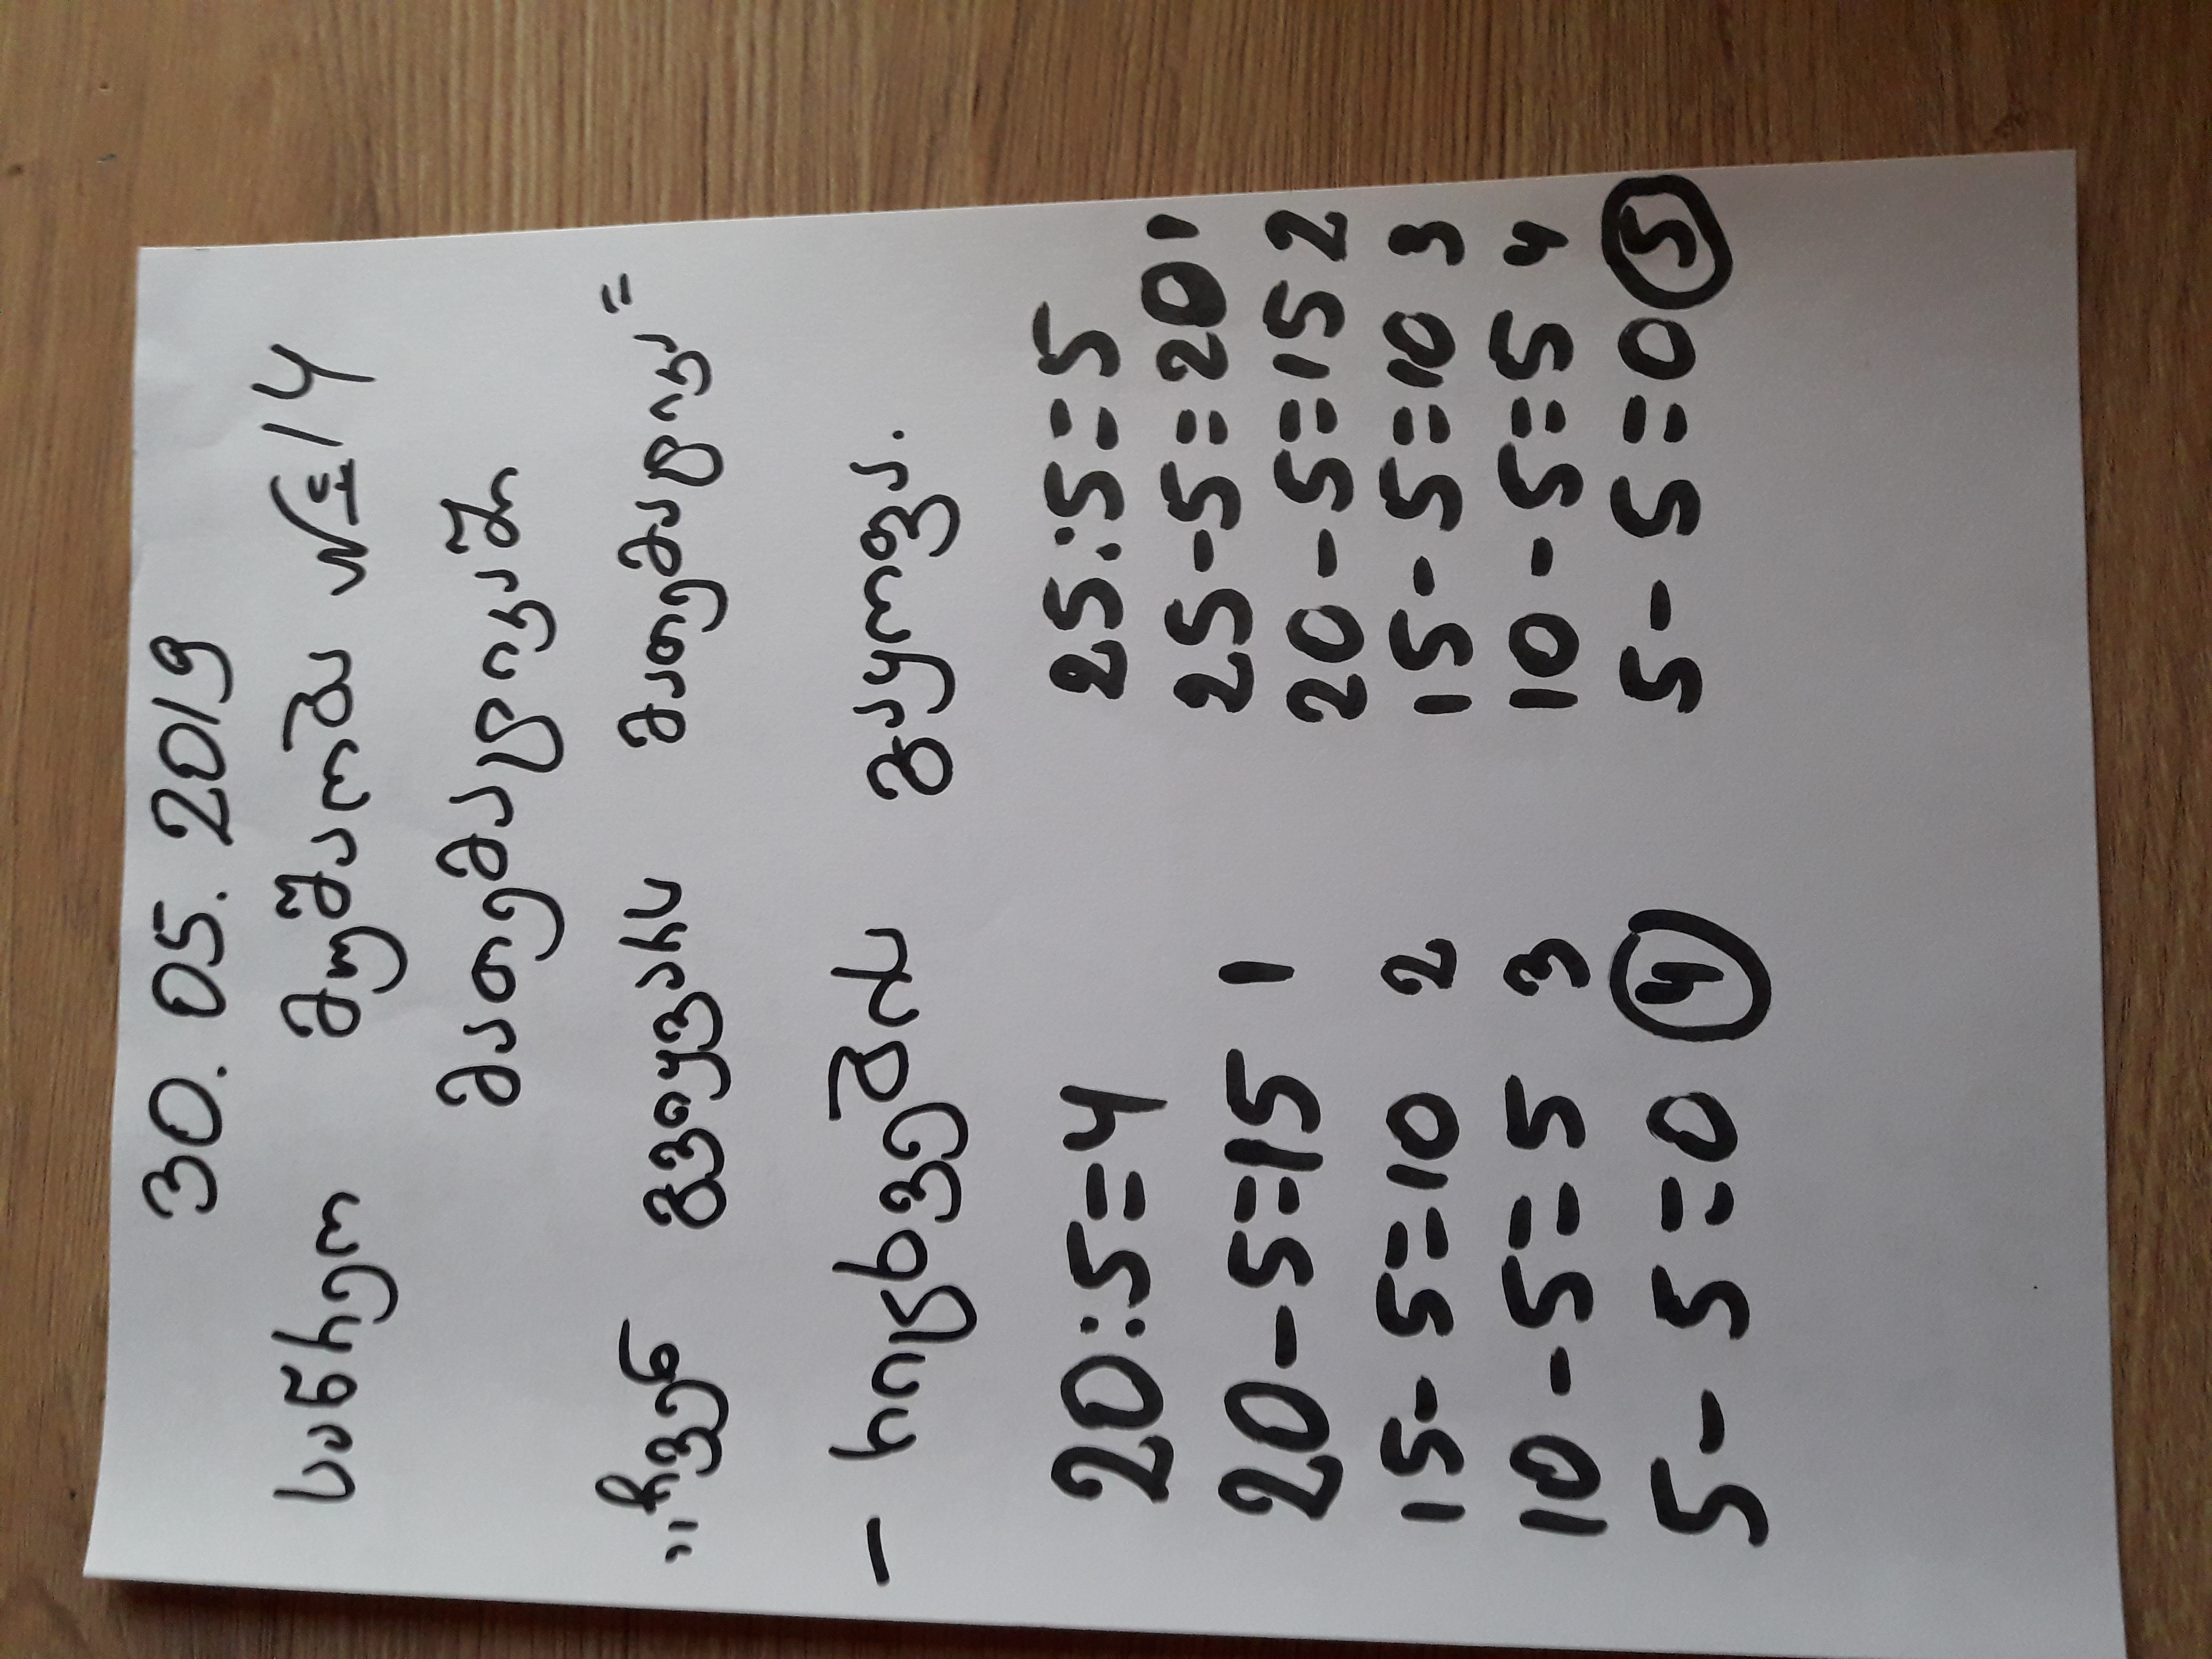 30.05.2019
მუშაობა №14
მათემატიკაში
მათემატიკა"
- რიცხვების გაყოფა.
20:5=4 25:5=5
20-5=15 1 25-5=20 1
15-5=10 2 20-5=15 2
10-5=5 3 15-5=10 3
5-5=0 4 10-5=5 4
5-5=0 5